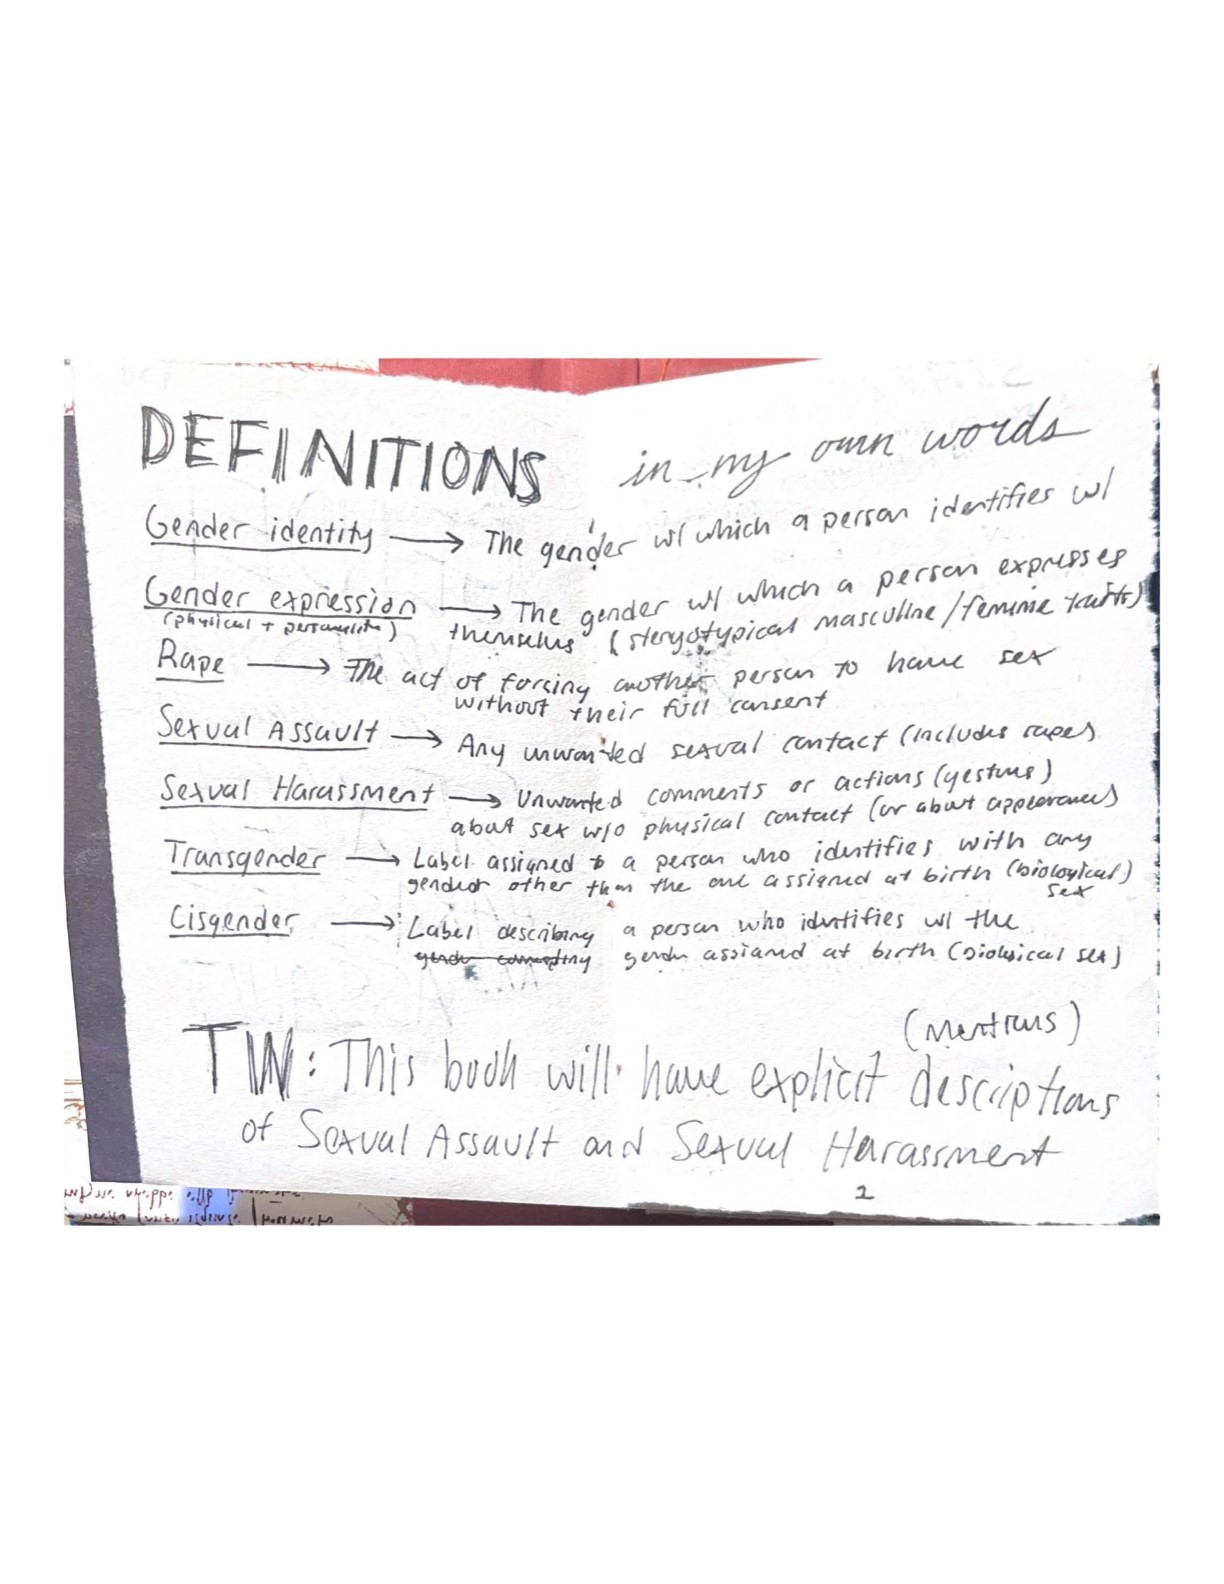 DEFINITIONS in my own words
Gender identity → The gender w/ which a person identifies w/
Gender expression → The gender w/ which a person expresses
(physical + personality) themselves (steryotypical masculine/feminine traits)
Rape → The act of forcing another person to have sex
without their full consent
Sexual Assault → Any unwanted sexual contact (includes rape)
Sexual Harassment → Unwanted comments or actions (gestures)
about sex w/o physical contact (or about appearance)
Transgender → Label assigned to a person who identifies with any
gender other than the one assigned at birth (biological)
sex
Cisgender → Label describing a person who identifies w/ the
gender assigned at birth (biological sex)
(mentions)
TW: This book will have explicit descriptions
of Sexual Assault and Sexual Harassment
2